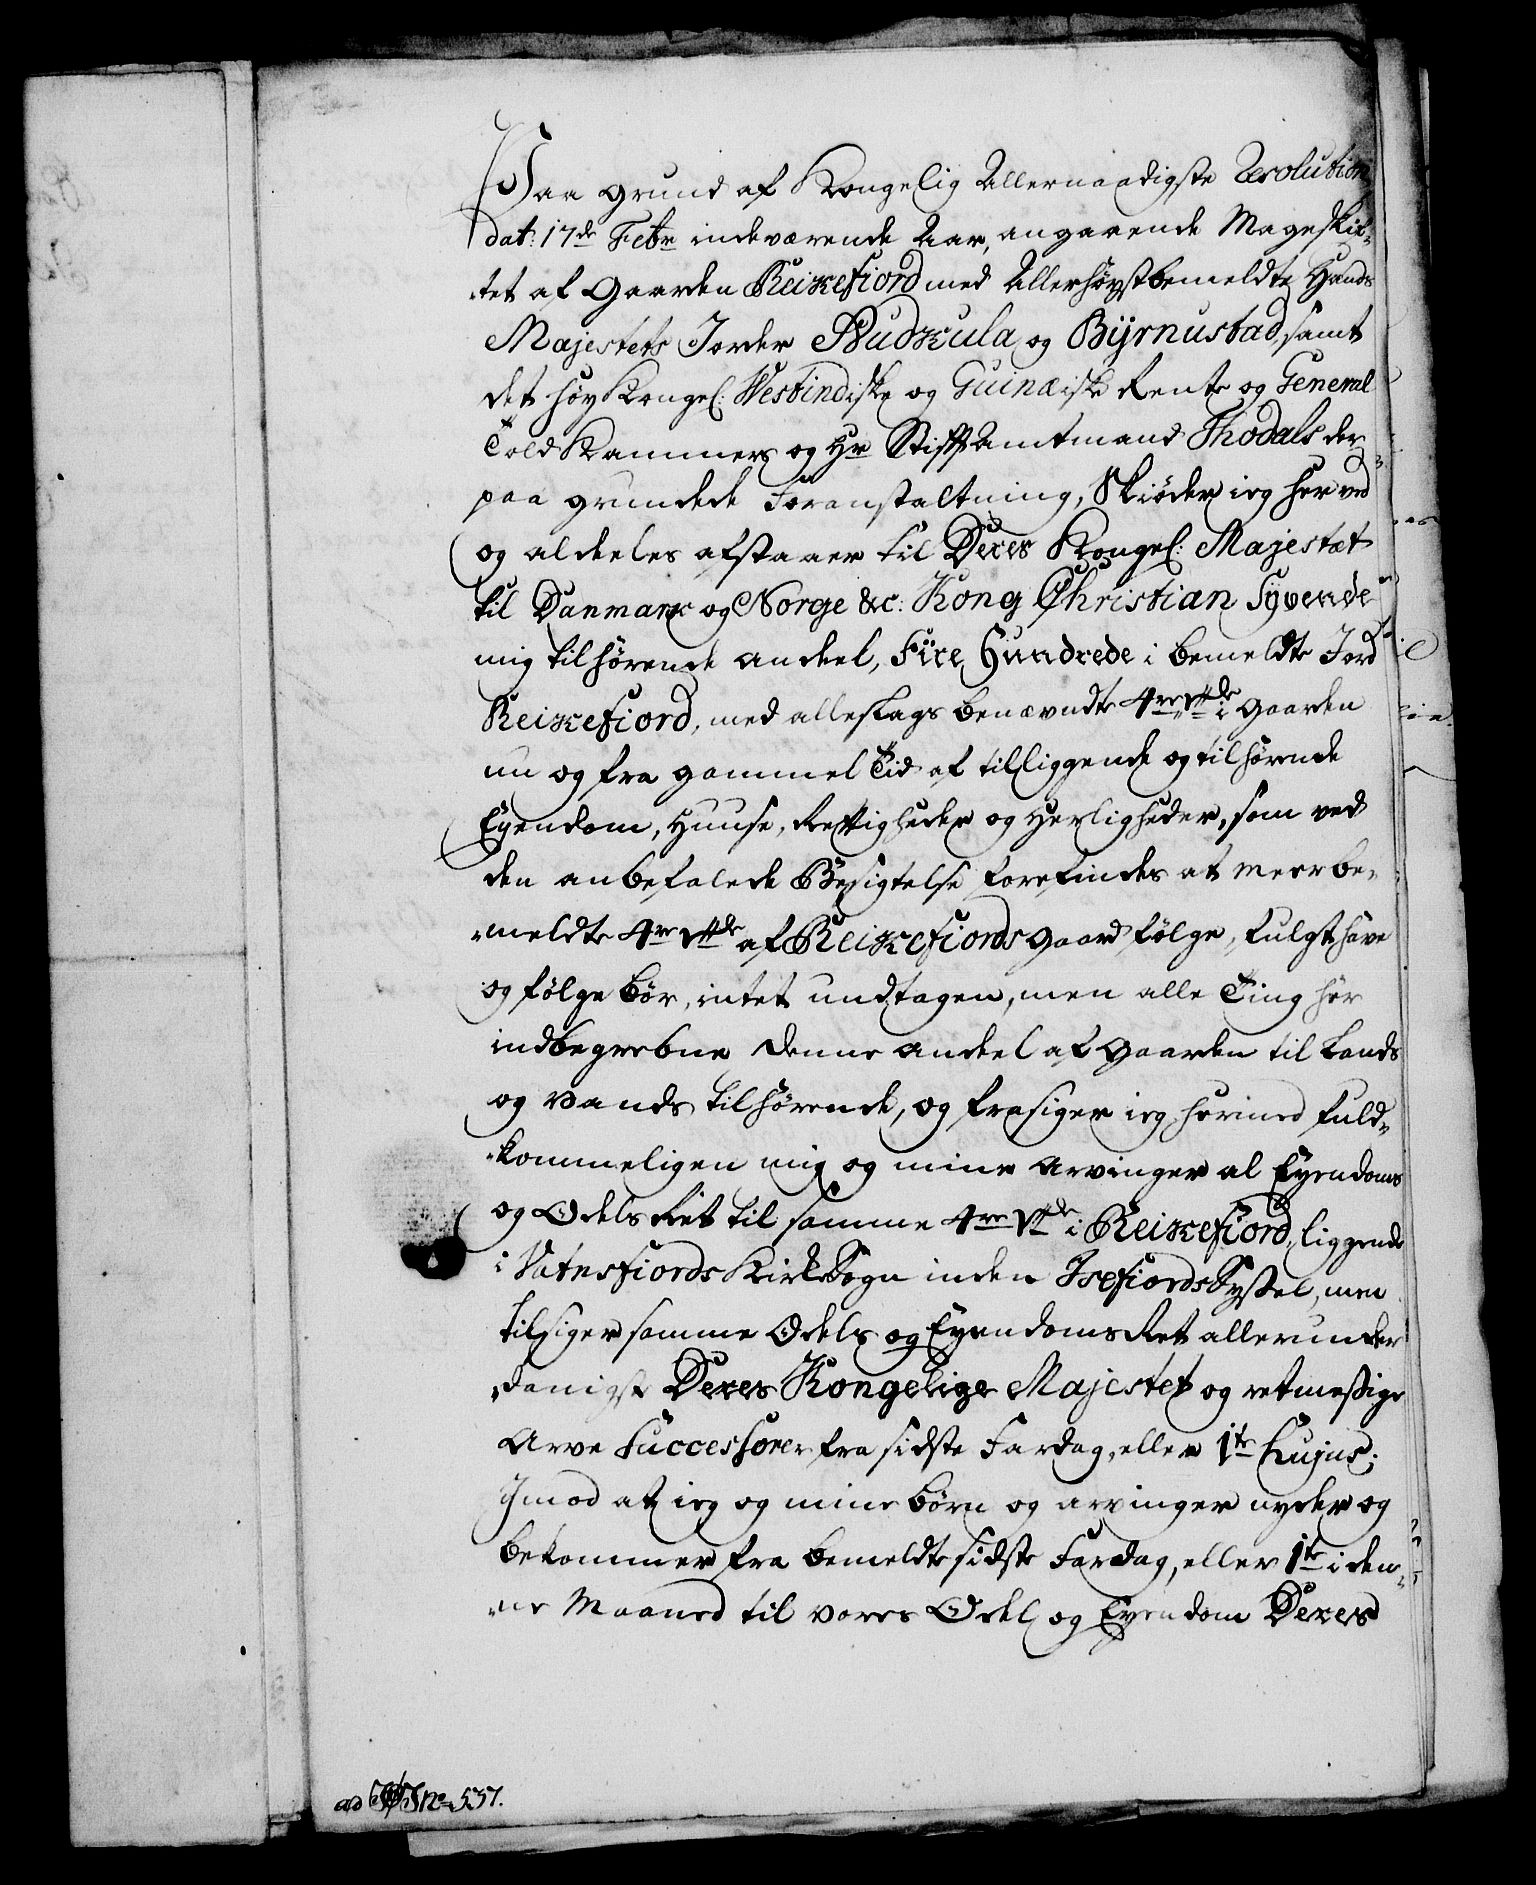 Paa grund af Kongelig Allernaadigste Resolution
dat: 17de Febr indeværende Aar, angaaende Mageskif-
tet af Gaarden Reikefiord med Allerhøystbemeldte Hands
Majestets Jorder Rudkula og Byrnustad, samt
det høy Kongel: Westindiske og Guinæiske Rente og General
Told Kammers og Hr Stiftamtmand Thodals der
paa grundede Foranstaltning, Skiøder ieg her ved
og aldeeles afstaaer til Deres Kongel: Majestæt
til Danmark og Norge &c: Kong Christian Syvende
mig tilhørende andeel, Fire Hundrede i bemeldte Jord
Reikefiord, med alleslags benævndte 4re i Gaarden
nu og fra gammel Tid af tilliggende og tilhørende
Eyendom, Huuse, Rettigheder og Herligheder, som ved
den anbefalede Besigtelse forefindes at meerbe-
meldte 4re af Reikefiords Gaard følge, fulgt have
og følge bør, intet undtagen, men alle Ting her
indbegrebne denne andeel af Gaarden til Lands
og Vands tilhørende, og frasiger ieg hermed fuld-
kommeligen mig og mine Arvinger al Eyendoms
og Odels Ret til samme 4re i Reikefiord, liggende
i Vatnsfiords Kirke Sogn inden Isefiords Syssel, men
tilsiger samme Odels og Eyendoms Ret allerunder
danigst Deres Kongelige Majestet og retmessige
Arve Successorer fra sidste Fardag, eller 1te hujus;
Imod at ieg og mine børn og arvinger nyder og
bekommer fra bemeldte sidste Fardag, eller 1te i den-
ne Maaned til vores Odel og Eyendom Deres
ad No 537.